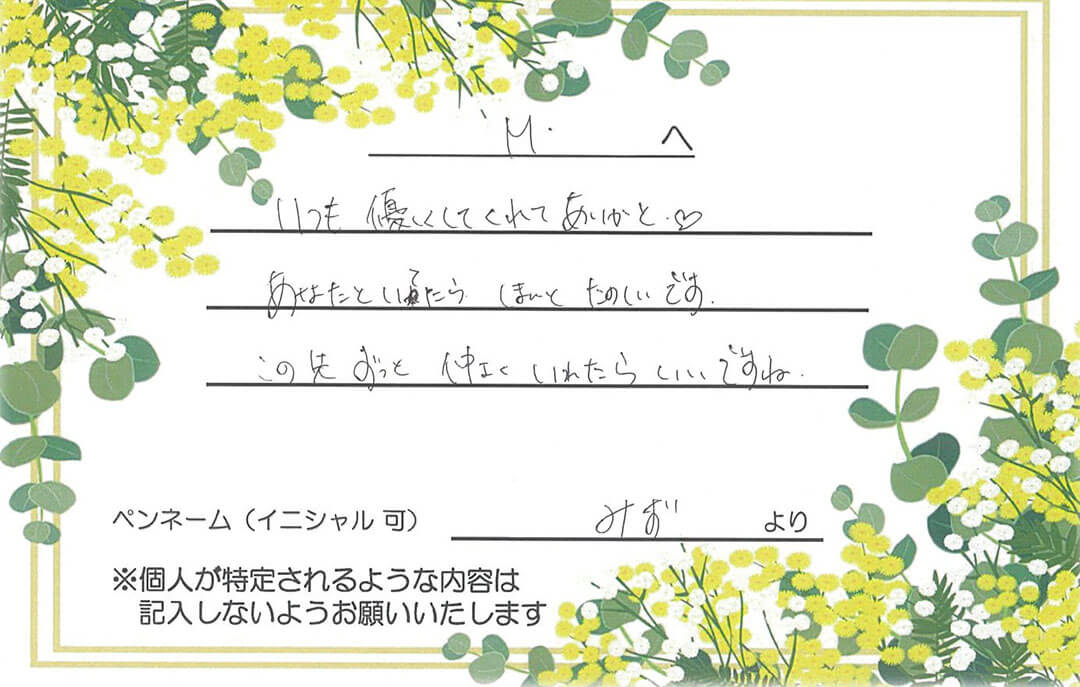 M. へ
いつも優しくしてくれてありがと.♡
あなたといれたら ほんと たのしいです.
この先ずっと 仲よく いれたら いいですね.
ペンネーム（イニシャル 可） みお゛ より
※個人が特定されるような内容は
記入しないようお願いいたします